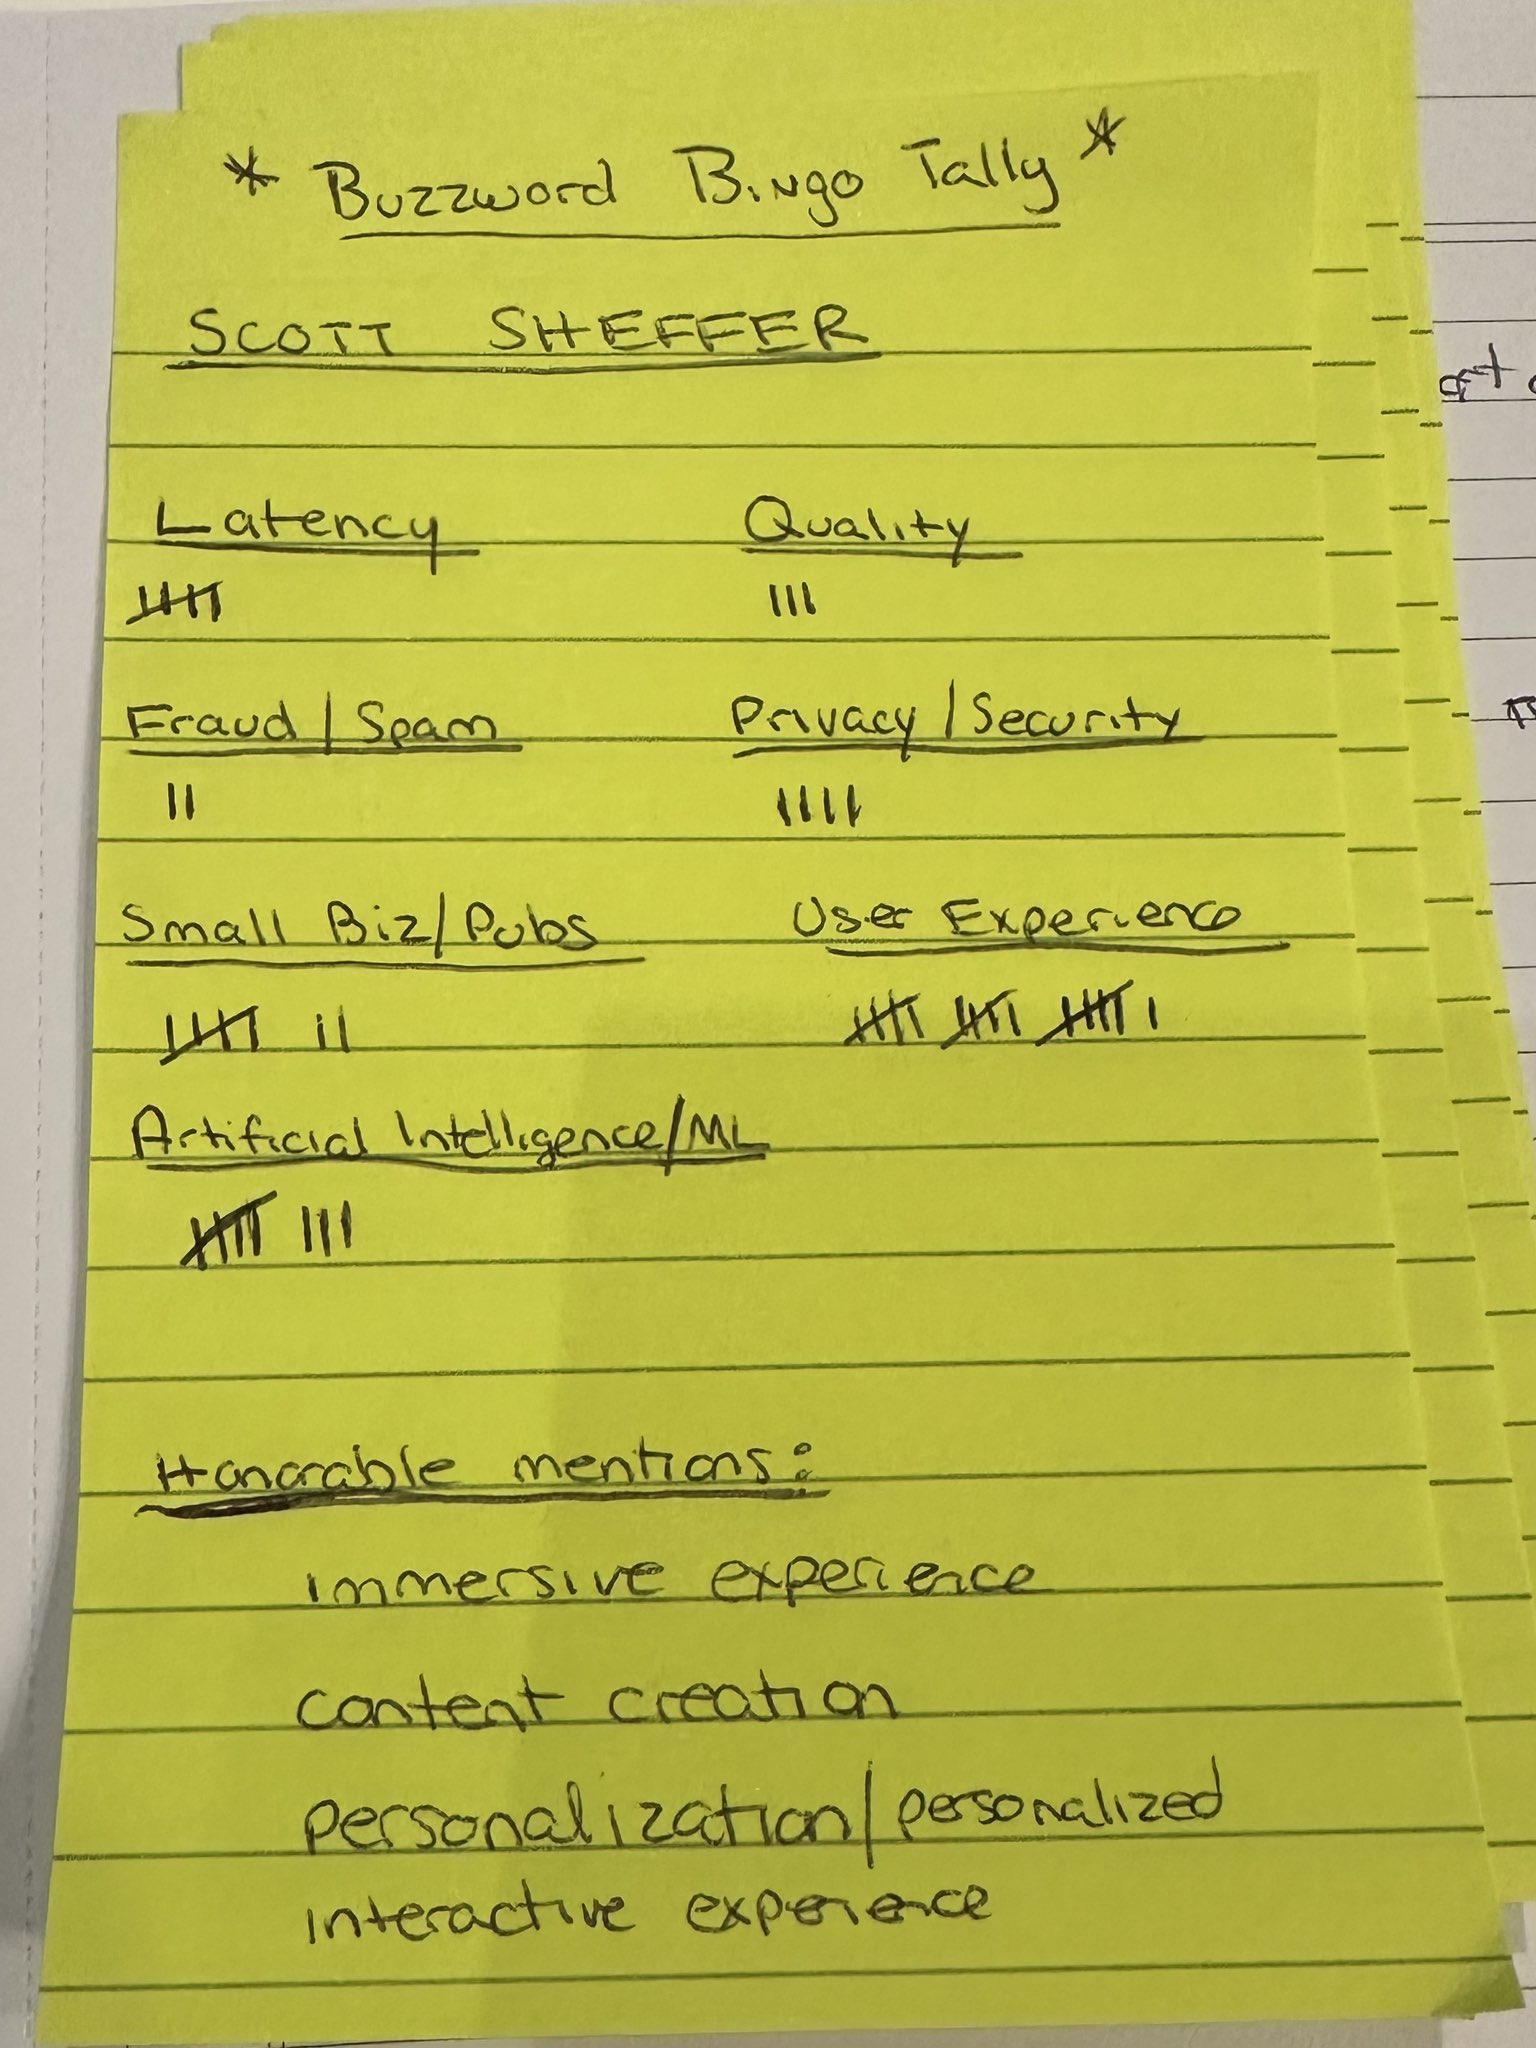 * Buzzword Bingo Tally *
SCOTT SHEFFER
Latency Quality
Fraud/Spam Privacy/Security
Small Biz/Pubs User Experience
Artificial Intelligence/ML
Honorable mentions:
immersive experience
content creation
personalization/personalized
interactive experience